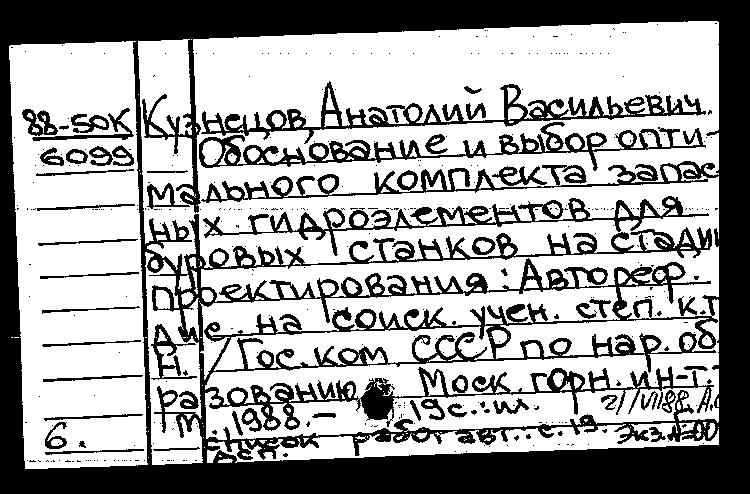 88-50К Кузнецов, Анатолий Васильевич.
6099 Обоснование и выбор опти-
мального комплекта запас
ных гидроэлементов для
буровых станков на стадии
проектирования: Автореф.
Дис. на соиск. учен. степ. к.т
н. / Гос. ком. СССР по нар. об-
разованию. Моск. горн. ин-т.-
М., 1988. - 19 с.: ил.
6. Список работ авт.: с. 19. Экз. №00
Дсп.